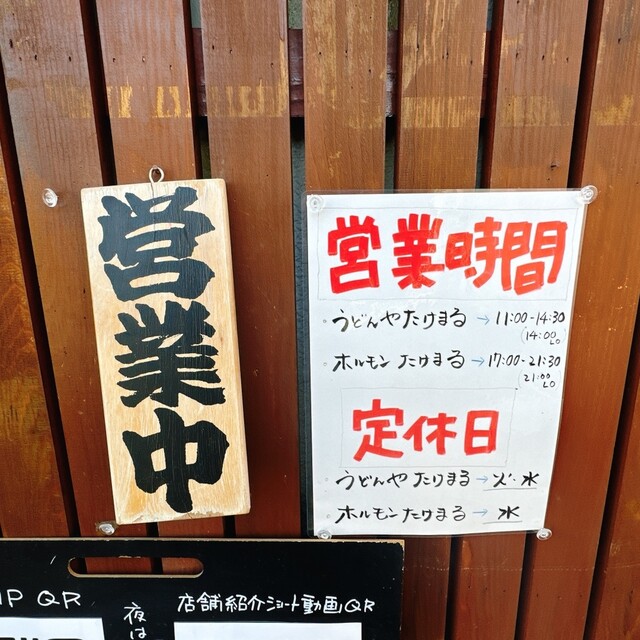 営業中
営業時間
うどんや たけまる → 11:00-14:30
(14:00LO)
ホルモン たけまる → 17:00-21:30
(21:00LO)
定休日
うどんや たけまる → 火・水
ホルモン たけまる → 水
QR
夜は
店舗紹介ショート動画QR